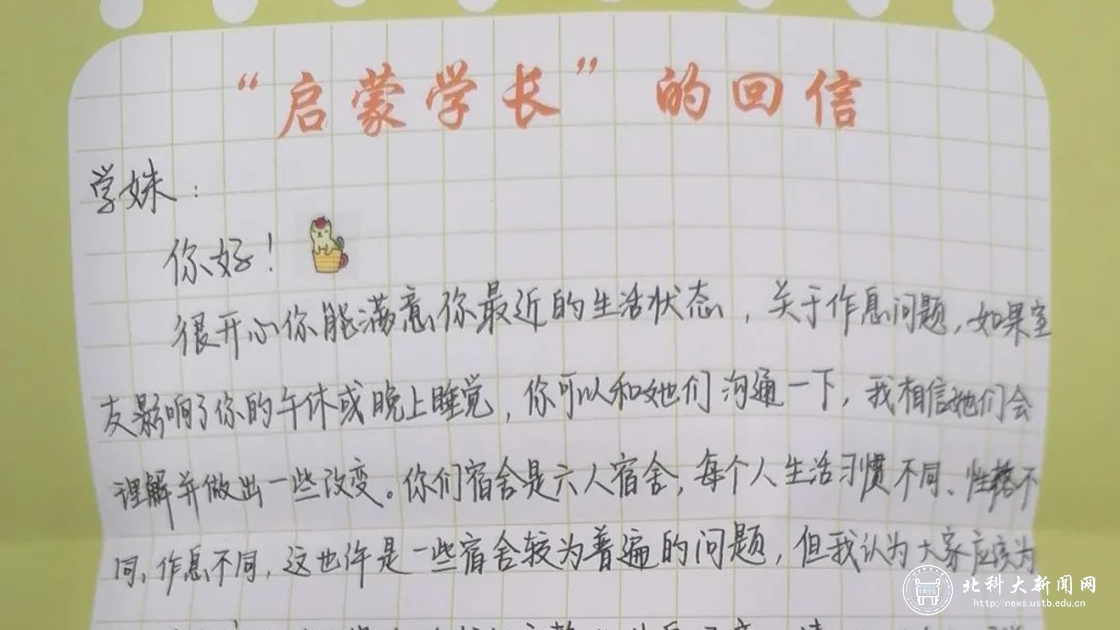 “启蒙学长”的回信
学妹：
你好！
很开心你能满意你最近的生活状态，关于作息问题，如果室
友影响了你的午休或晚上睡觉，你可以和她们沟通一下，我相信她们会
理解并做出一些改变。你们宿舍是六人宿舍，每个人生活习惯不同、性格不
同、作息不同，这也许是一些宿舍较为普遍的问题，但我认为大家应该为
北科大新闻网
http://news.ustb.edu.cn